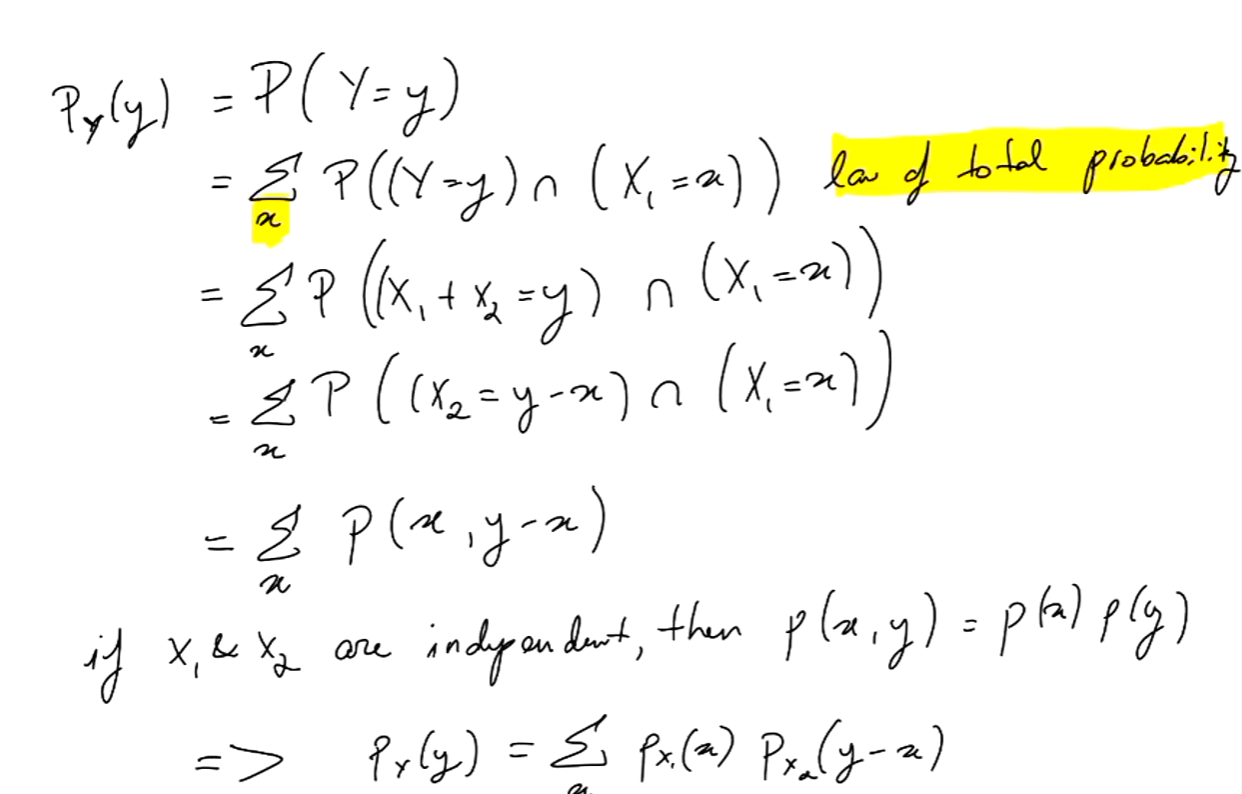 P_Y(y) = P(Y=y)
= Σ_x P((Y=y) ∩ (X₁=x)) law of total probability
= Σ_x P((X₁+X₂=y) ∩ (X₁=x))
= Σ_x P((X₂=y-x) ∩ (X₁=x))
= Σ_x P(x, y-x)
if X₁ & X₂ are independent, then p(x,y) = p(x) p(y)
=> P_Y(y) = Σ_x p_X₁(x) P_X₂(y-x)